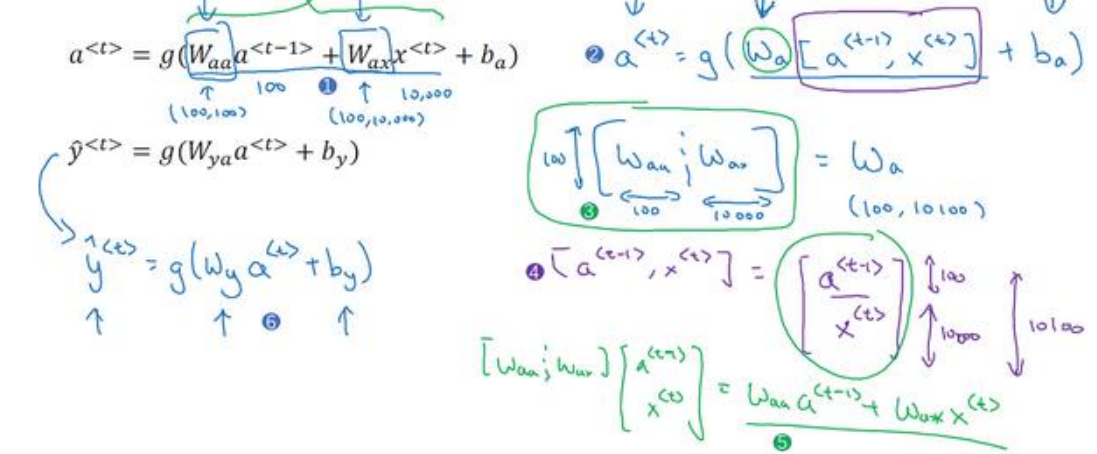 a^{<t>} = g(W_{aa}a^{<t−1>} + W_{ax}x^{<t>} + b_a)
↑ 100 ❶ ↑ 10,000
(100,100) (100,10,000)
ŷ^{<t>} = g(W_{ya}a^{<t>} + b_y)
ŷ^{<t>} = g(W_y a^{<t>} + b_y)
↑ ↑ ❻ ↑
❷ a^{<t>} = g(W_a [a^{<t-1>}, x^{<t>}] + b_a)
100 [W_{aa} ; W_{ax}] = W_a
❸ 100 10000 (100, 10100)
❹ [a^{<t-1>}, x^{<t>}] = [a^{<t-1>} 100
x^{<t>}] 10000 10100
[W_{aa} ; W_{ax}] [a^{<t-1>}
x^{<t>}] = W_{aa} a^{<t-1>} + W_{ax} x^{<t>}
❺